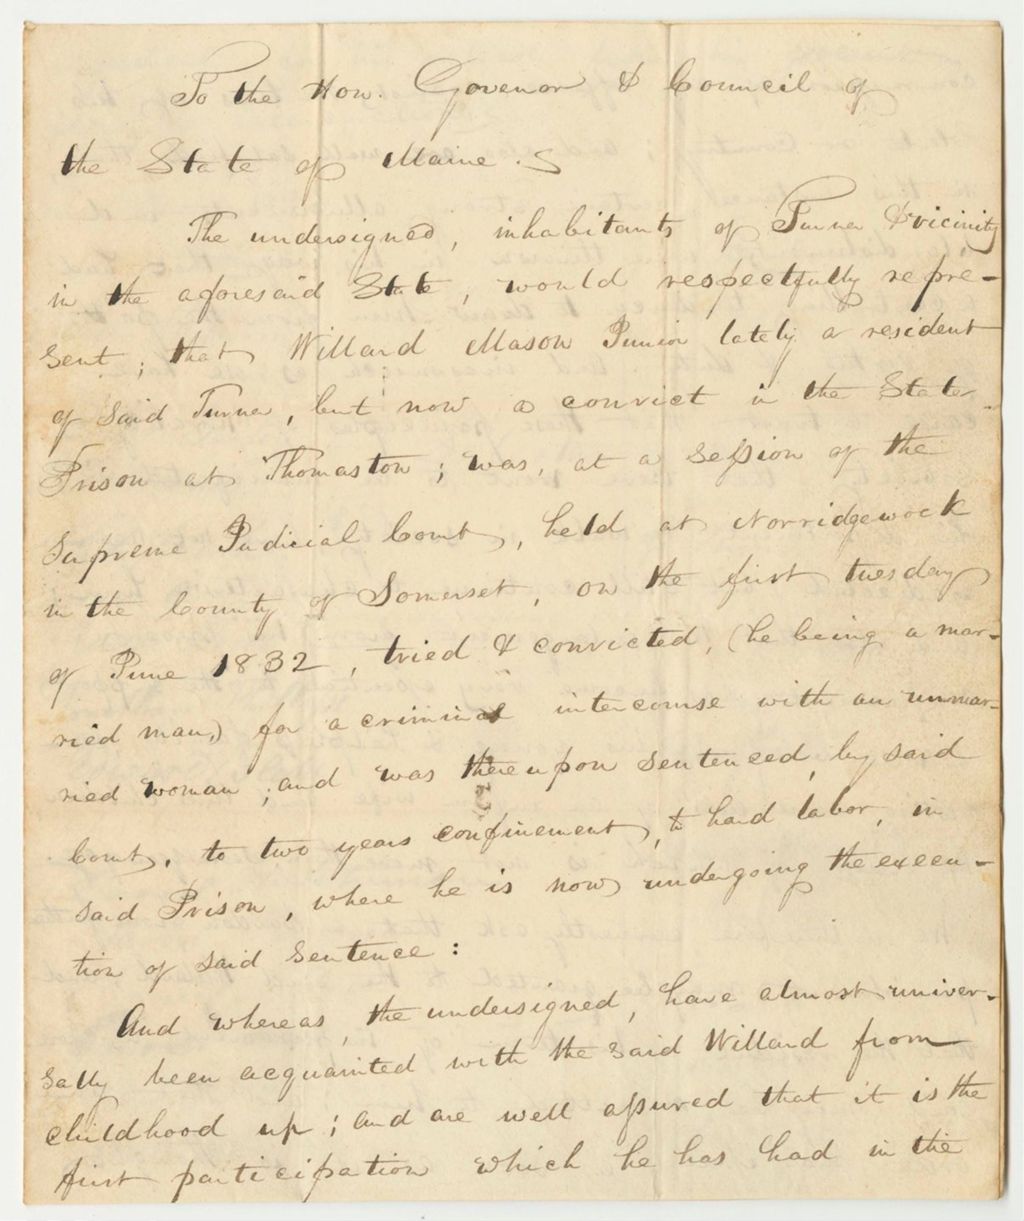 To the Hon. Govenor & Council of
the State of Maine.
The undersigned, inhabitants of Turner & vicinity
in the aforesaid State, would respectfully repre-
sent; that Willard Mason Junior lately a resident
of said Turner, but now a convict in the State
Prison at Thomaston; was, at a session of the
Supreme Judicial Court, held at Norridgewock
in the County of Somerset, on the first tuesday
of June 1832, tried & convicted, (he being a mar-
ried man,) for a criminal intercourse with an unmar-
ried woman; and was thereupon sentenced, by said
Court, to two years confinement, to hard labor, in
said Prison, where he is now undergoing the execu-
tion of said sentence:
And whereas, the undersigned, have almost univer-
sally been acquainted with the said Willard from
childhood up; and are well assured that it is the
first participation which he has had in the